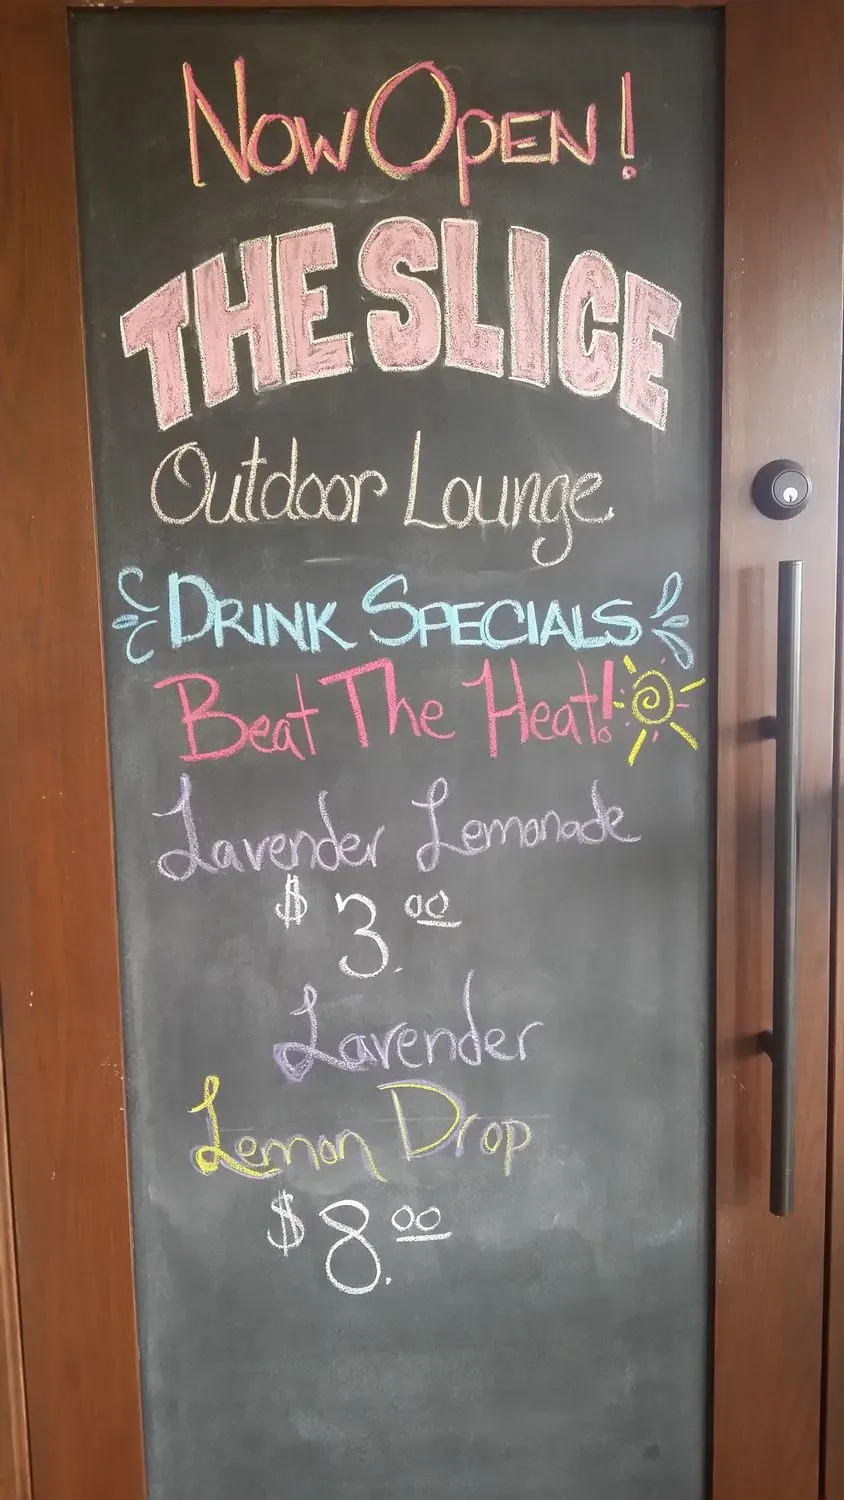 Now Open!
THE SLICE
Outdoor Lounge
DRINK SPECIALS
Beat The Heat!
Lavender Lemonade
$3.00
Lavender
Lemon Drop
$8.00